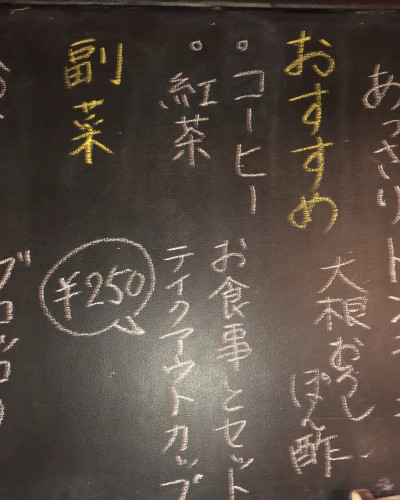 あっさり
おすすめ
大根おろし
ぽん酢
。コーヒー
。紅茶
お食事とセット
テイクアウトカップ
¥250
副菜
ブロッコリ